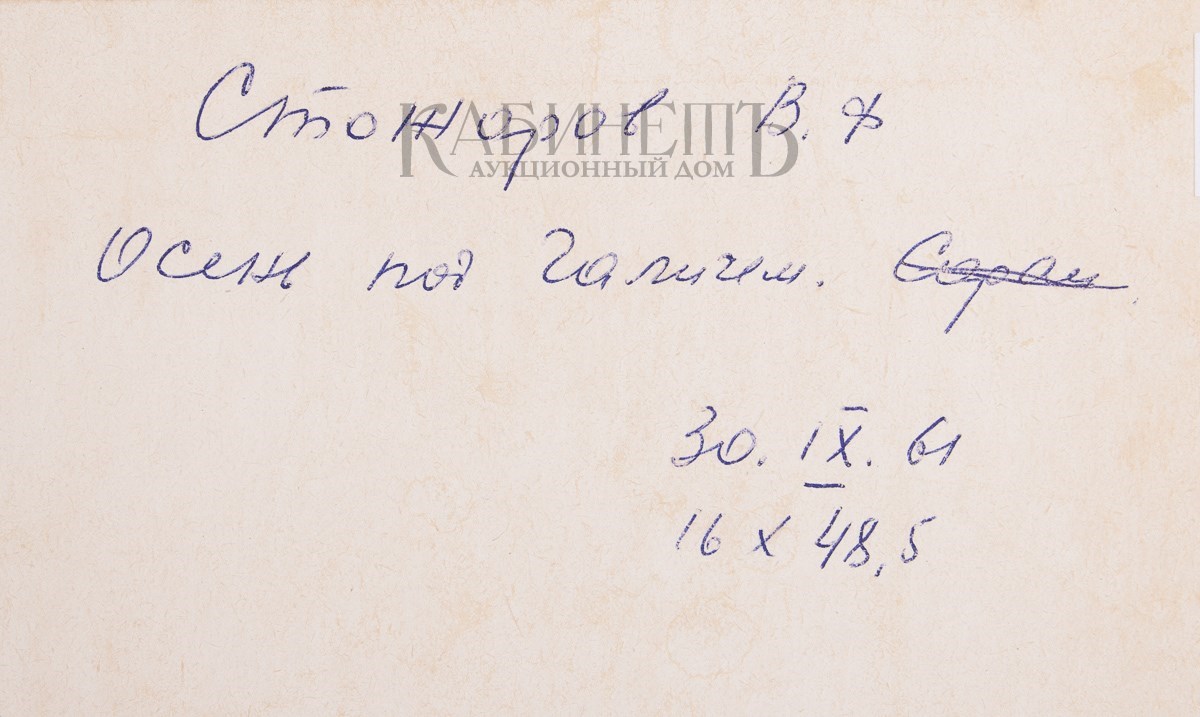 Стожаров В. Ф
КАБИНЕТЪ
АУКЦИОННЫЙ ДОМ
Осень под Галичем.
30. IX. 61
16 х 48,5